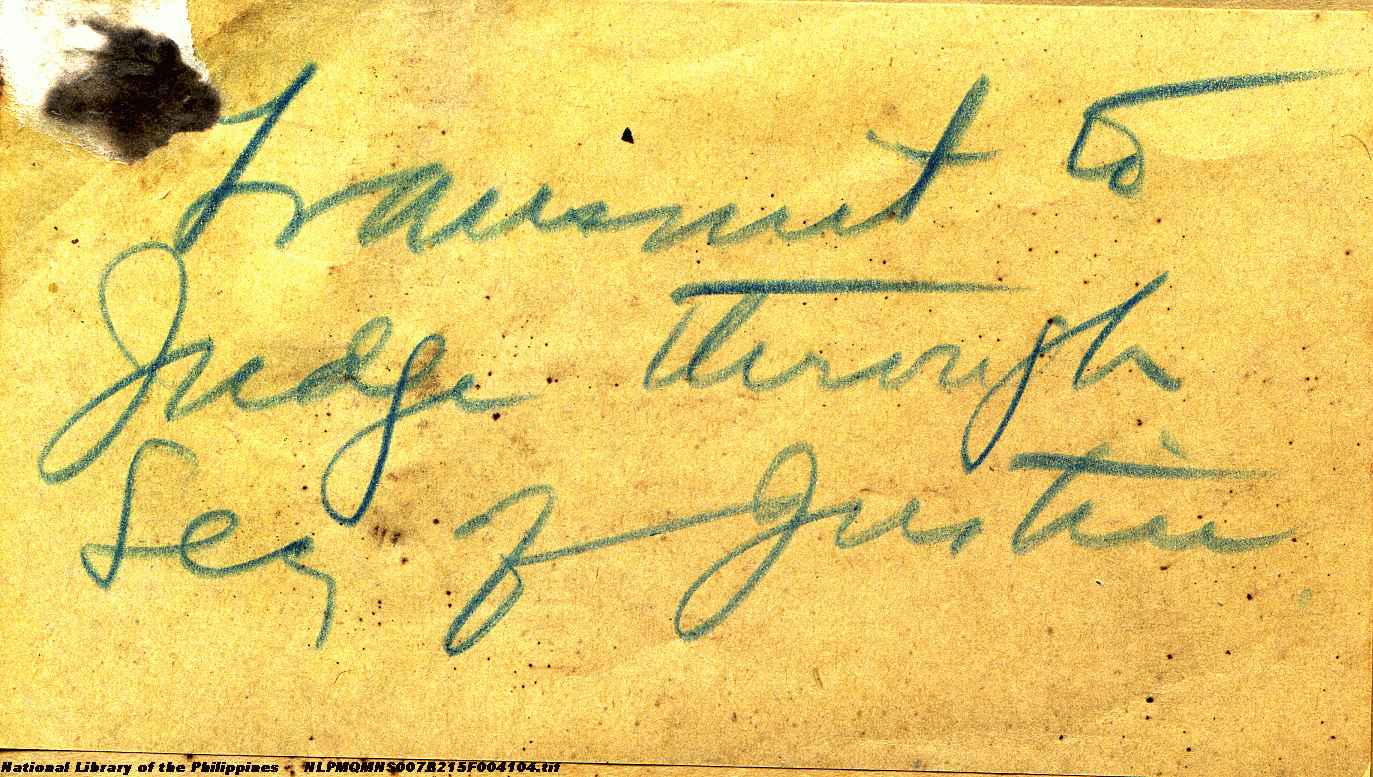 Transmit to
Judge through
Secy of Justice
National Library of the Philippines - NLPMQMNS007B215F004104.tif